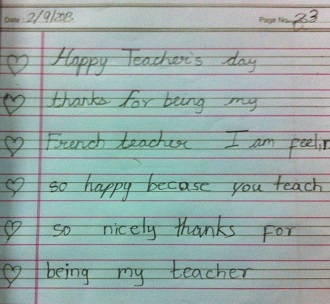 Date: 2/9/2013 Page No. 23
Happy Teacher's day
thanks for being my
French teacher I am feelin
so happy becase you teach
so nicely thanks For
being my teacher